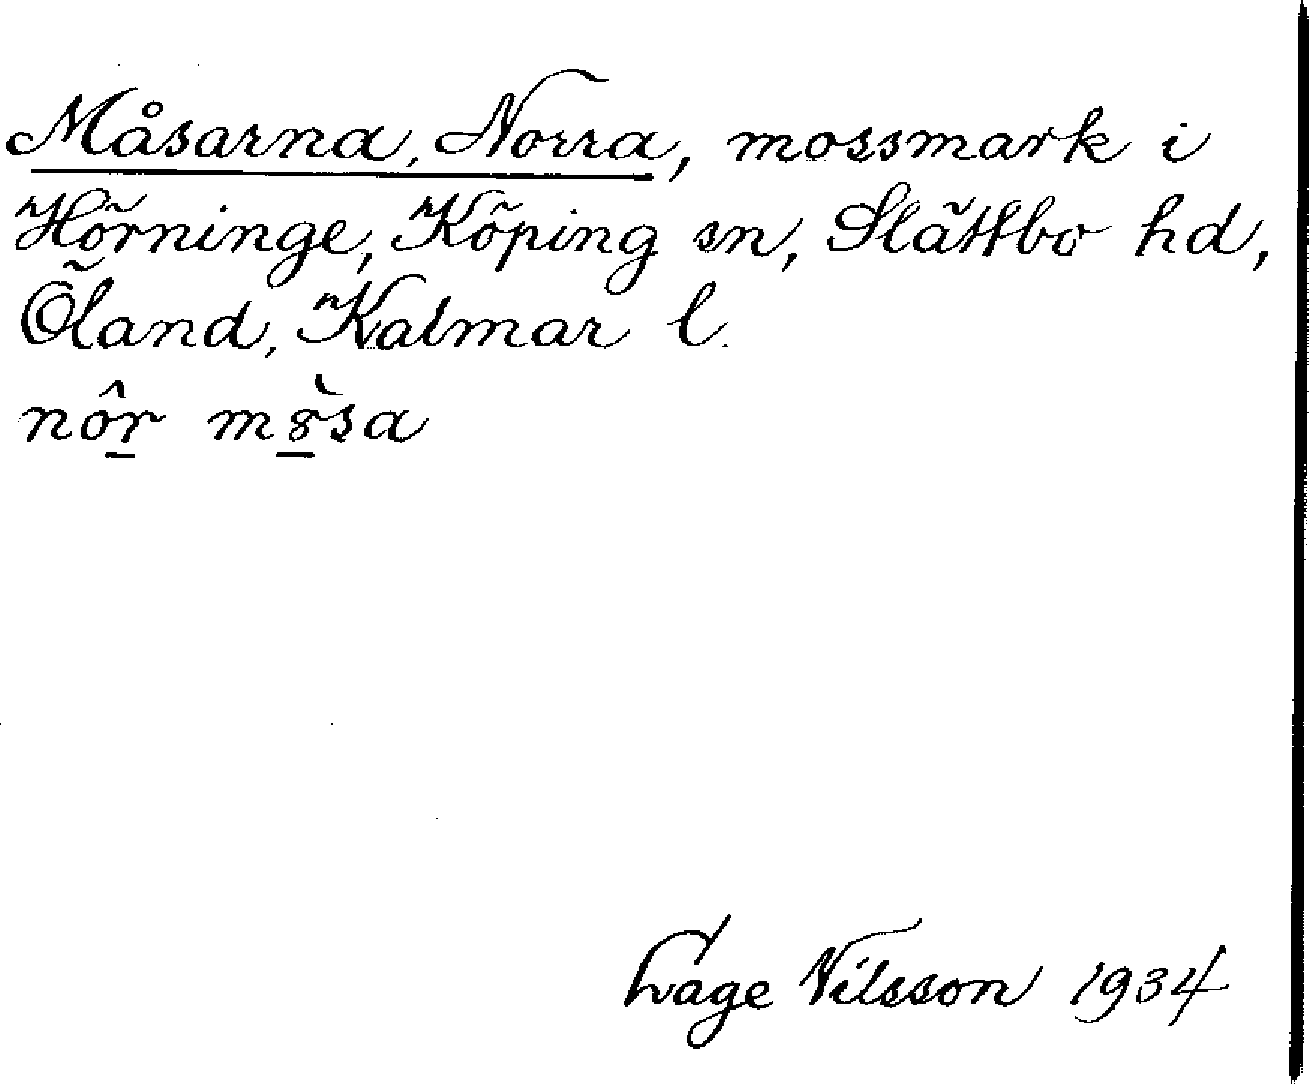 Måsarna, Norra, mossmark i
Hörninge, Köping sn, Slättbo hd,
Öland, Kalmar l.
nôr mȣ̀sa
Nilsson 1934